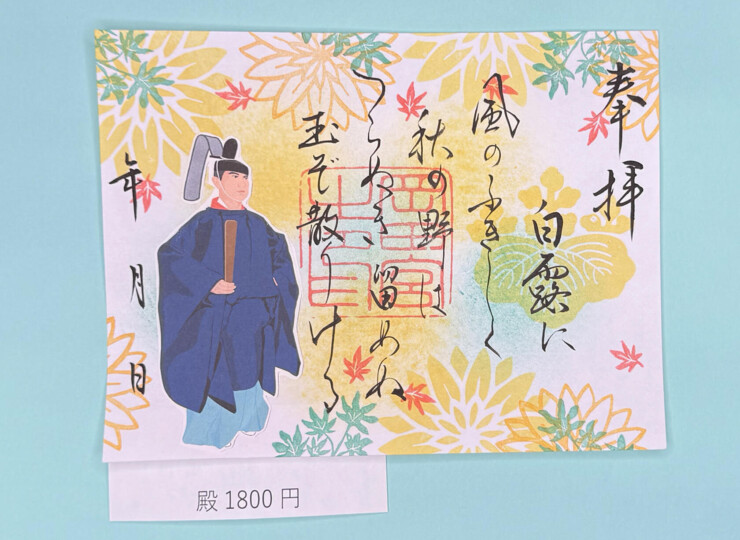 奉拝
白露に
風のふきしく
秋の野は
つらぬき留めぬ
玉ぞ散りける
年 月 日
岡田宮
殿 1800 円